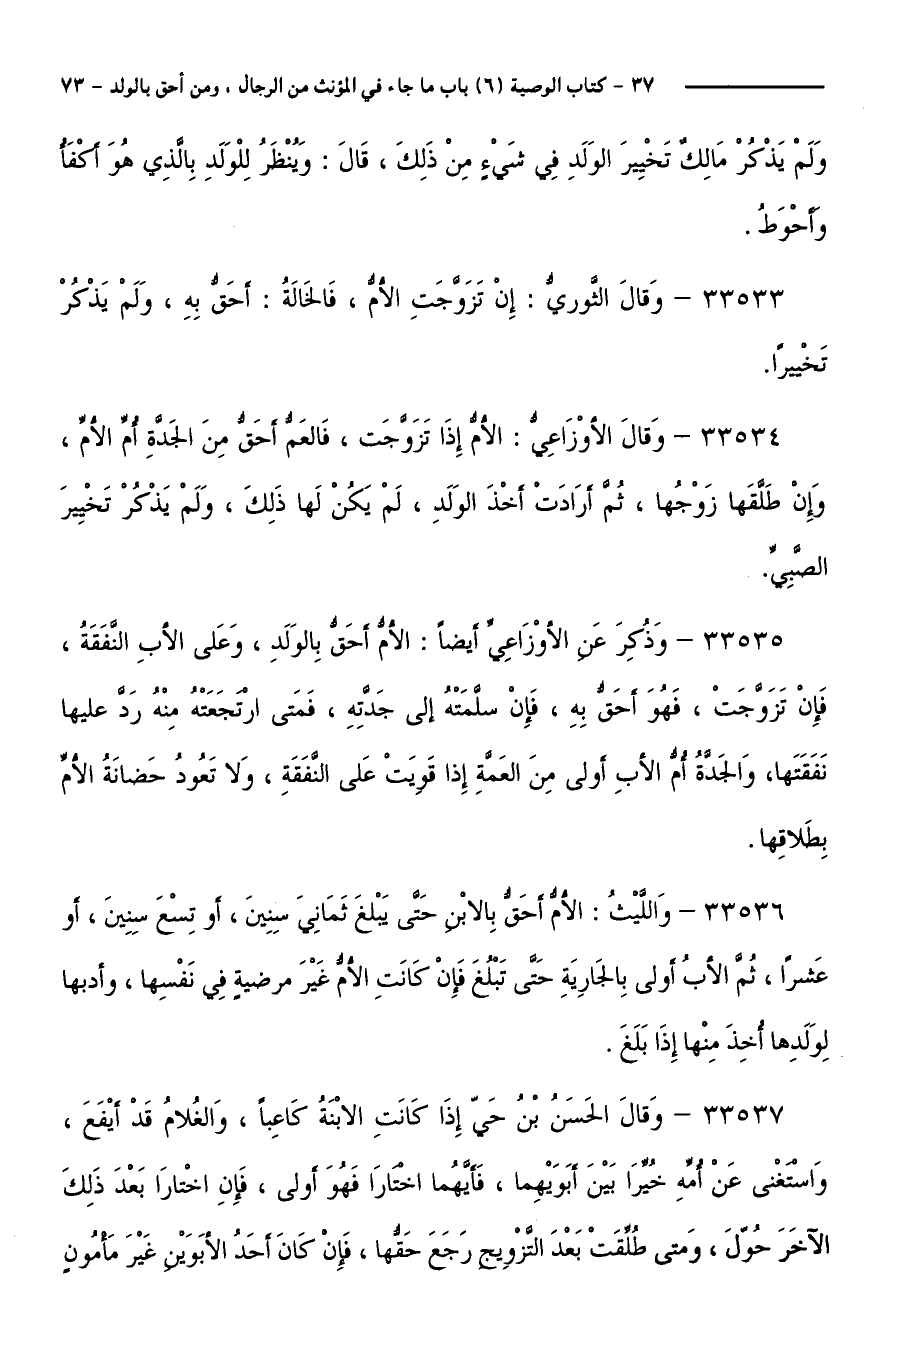 ٣٧ – كتاب الوصية (٦) باب ما جاء في المؤنث من الرجال ، ومن أحق بالولد – ٧٣
وَلَمْ يَذْكُرْ مَالِكٌ تَخْيِيرَ الوَلَدِ فِي شَيْءٍ مِنْ ذَلِكَ ، قَالَ : وَيُنْظَرُ لِلْوَلَدِ بِالَّذِي هُوَ أَكْفَأُ
وَأَحْوَطُ .
٣٣٥٣٣ – وَقالَ الثَّوريُّ : إِنْ تَزَوَّجَتِ الأُمُّ ، فَالخَالَةُ : أَحَقُّ بِهِ ، وَلَمْ يَذْكُرْ
تَخْيِيراً.
٣٣٥٣٤ – وَقالَ الأَوْزَاعِيُّ : الأُمُّ إِذَا تَزَوَّجَت ، فَالعَمُّ أَحَقُّ مِنَ الجَدَّةِ أُمِّ الأُمِّ ،
وَإِنْ طَلَّقَها زَوْجُها ، ثُمَّ أَرَادَتْ أَخْذَ الوَلَدِ ، لَمْ يَكُنْ لَها ذَلِكَ ، وَلَمْ يَذْكُرْ تَخْيِيرَ
الصَّبِيِّ.
٣٣٥٣٥ – وَذُكِرَ عَنِ الأَوْزَاعِيِّ أَيضاً : الأُمُّ أَحَقُّ بِالوَلَدِ ، وَعَلى الأَبِ النَّفَقَةُ ،
فَإِنْ تَزَوَّجَتْ ، فَهُوَ أَحَقُّ بِهِ ، فَإِنْ سلَّمَتْهُ إِلى جَدَّتِهِ ، فَمَتى ارْتَجَعَتْهُ مِنْهُ رَدَّ عليها
نَفَقَتَها، وَالجَدَّةُ أُمُّ الأَبِ أَولى مِنَ العَمَّةِ إِذا قَوِيَتْ عَلى النَّفَقَةِ ، وَلا تَعُودُ حَضانَةُ الأُمِّ
بِطَلاقِها .
٣٣٥٣٦ – وَاللَّيْثُ : الأُمُّ أَحَقُّ بِالابْنِ حَتَّى يَبْلغَ ثَمَانِيَ سِنِينَ ، أَو تِسْعَ سِنِينَ ، أَو
عَشراً ، ثُمَّ الأَبُ أَولى بِالجَارِيَةِ حَتَّى تَبْلُغَ فَإِنْ كَانَتِ الأُمُّ غَيْرَ مرضيةٍ فِي نَفْسِها ، وأدبها
لِوَلَدِها أُخِذَ مِنْها إِذَا بَلَغَ .
٣٣٥٣٧ – وَقالَ الحَسَنُ بْنُ حَيّ إِذَا كَانَتِ الابْنَةُ كَاعِباً ، وَالغُلامُ قَدْ أَيْفَعَ ،
وَاسْتَغْنى عَنْ أُمِّهِ خُيِّرَا بَيْنَ أَبَوَيْهِما ، فَأَيَّهُما اخْتَارَا فَهُوَ أَولى ، فَإِنِ اختارَا بَعْدَ ذَلِكَ
الآخَرَ حُوِّلَ ، وَمتى طُلِّقَتْ بَعْدَ التَّزويجِ رَجَعَ حَقُّها ، فَإِنْ كَانَ أَحَدُ الأَبَوَيْنِ غَيْرَ مَأْمُونٍ